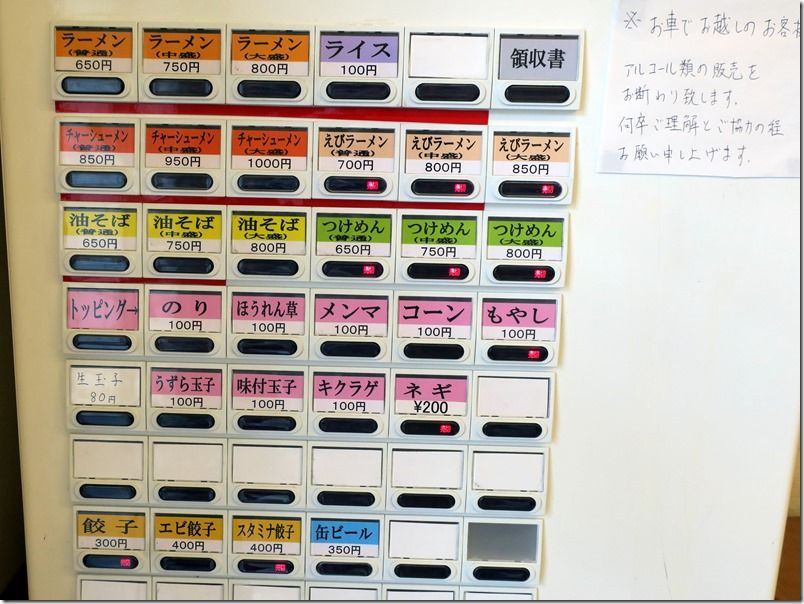 ラーメン
(普通)
650円
ラーメン
(中盛)
750円
ラーメン
(大盛)
800円
ライス
100円
領収書
チャーシューメン
(普通)
850円
チャーシューメン
(中盛)
950円
チャーシューメン
(大盛)
1000円
えびラーメン
(普通)
700円
えびラーメン
(中盛)
800円
えびラーメン
(大盛)
850円
油そば
(普通)
650円
油そば
(中盛)
750円
油そば
(大盛)
800円
つけめん
(普通)
650円
つけめん
(中盛)
750円
つけめん
(大盛)
800円
トッピング→
のり
100円
ほうれん草
100円
メンマ
100円
コーン
100円
もやし
100円
生玉子
80円
うずら玉子
100円
味付玉子
100円
キクラゲ
100円
ネギ
¥200
餃子
300円
エビ餃子
400円
スタミナ餃子
400円
缶ビール
350円
※お車でお越しのお客様
アルコール類の販売を
お断わり致します.
何卒ご理解とご協力の程
お願い申し上げます.